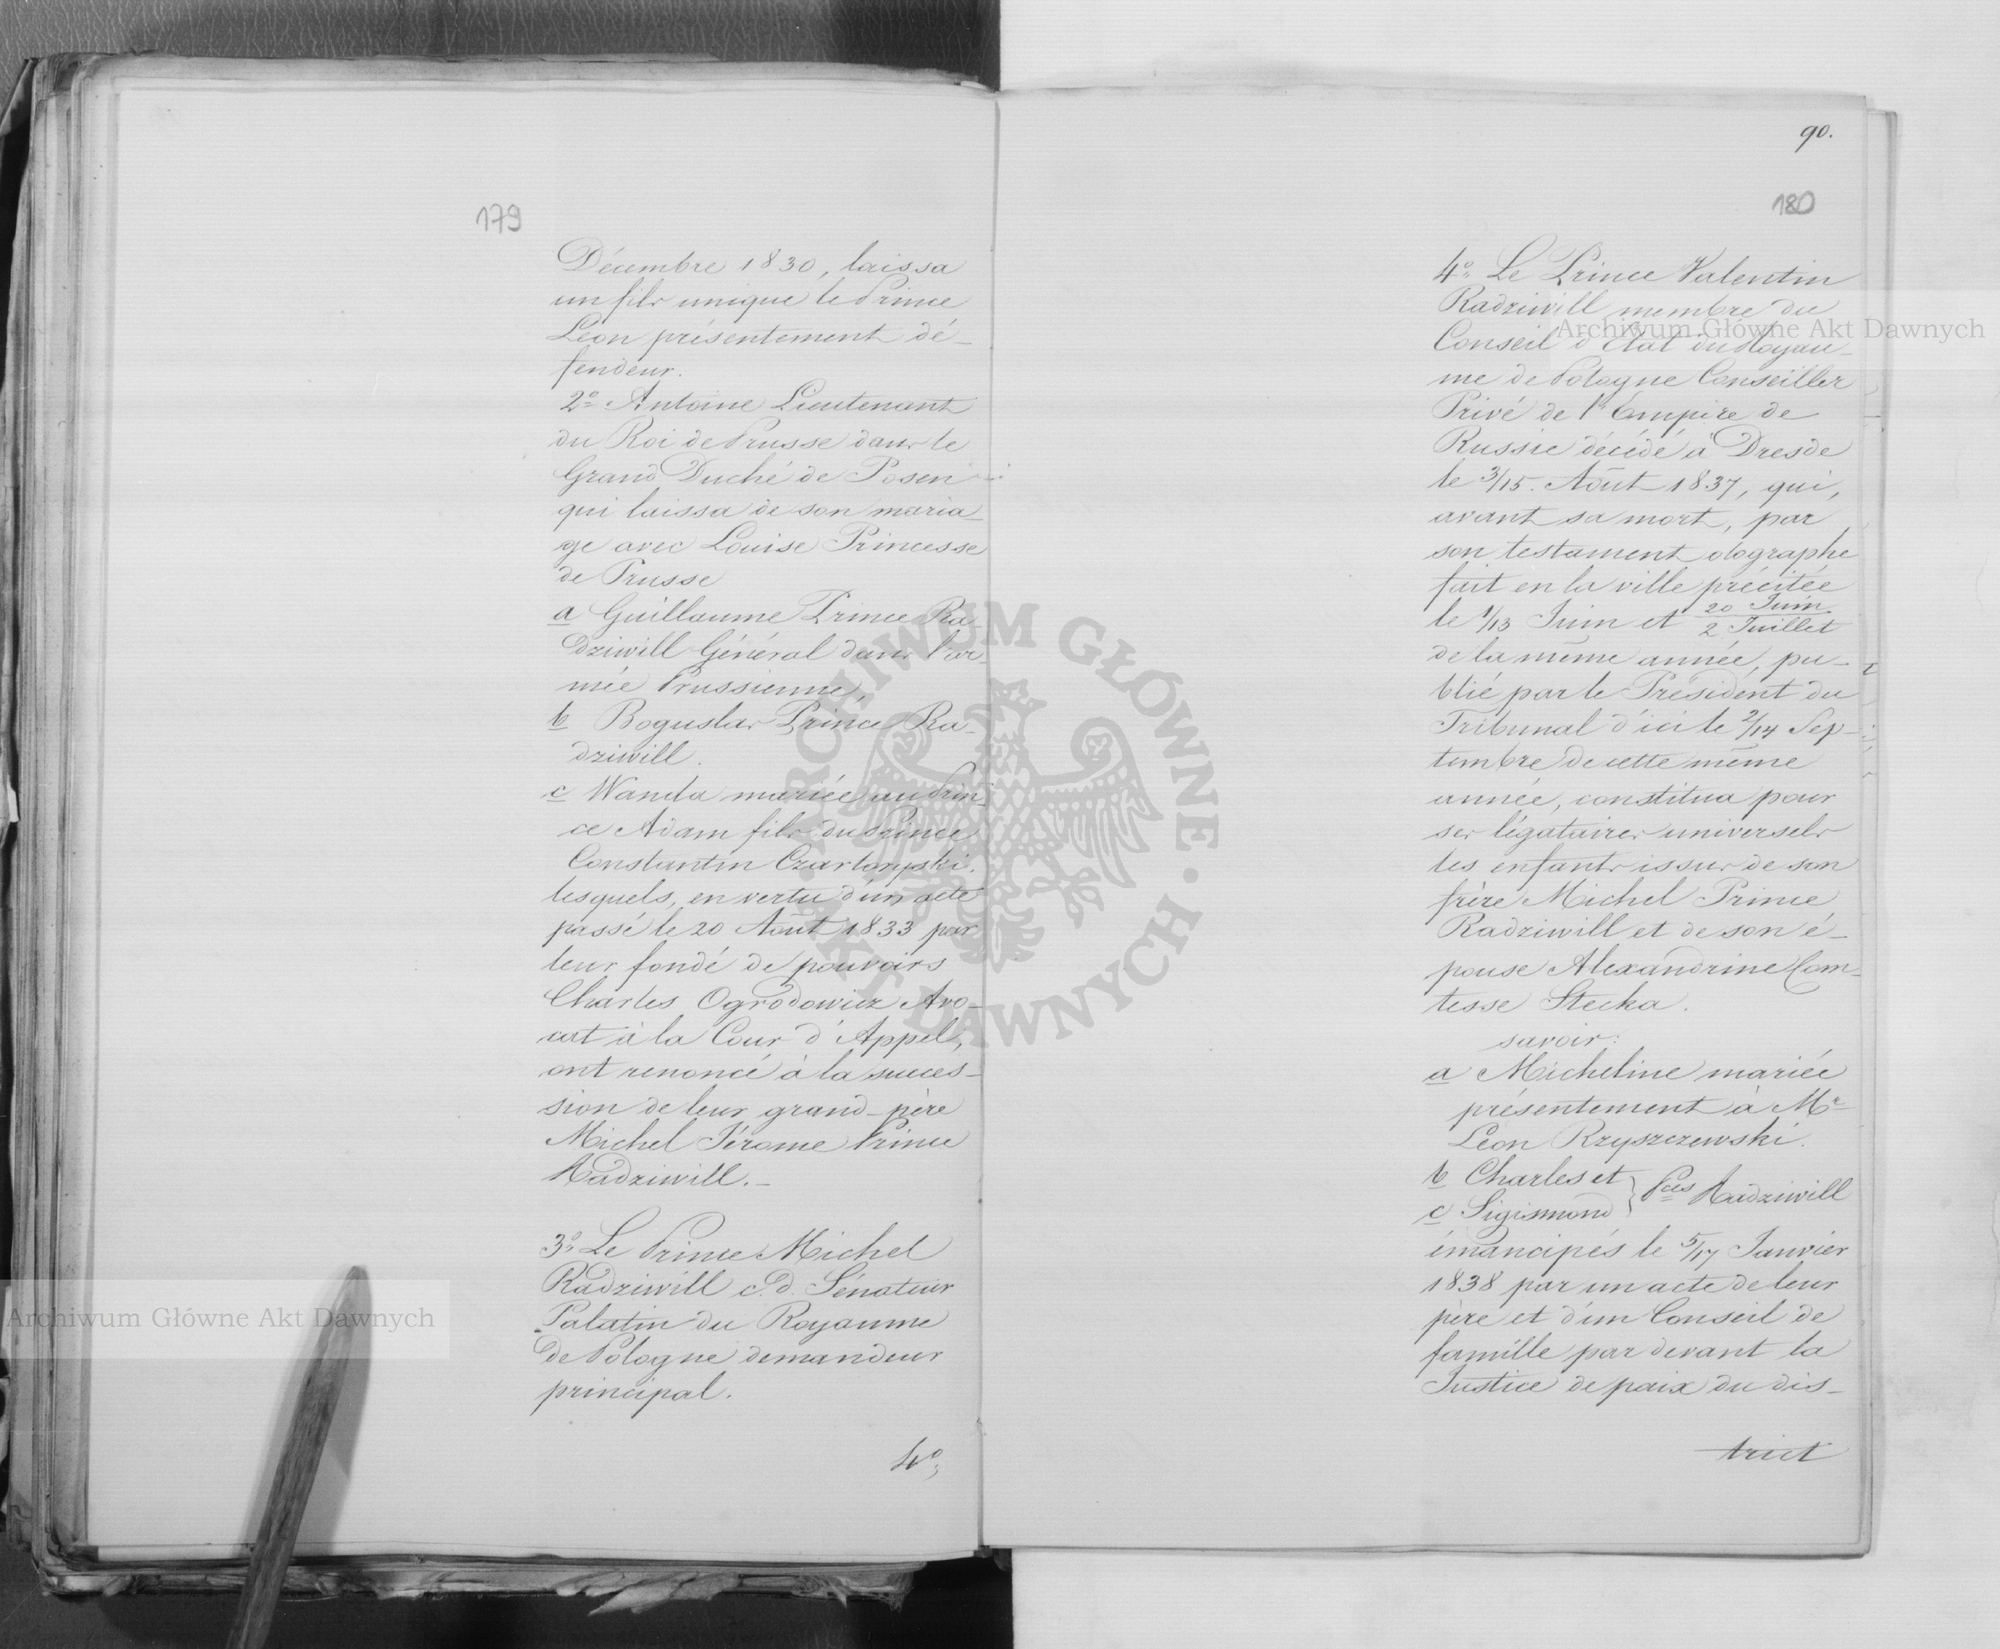 179
Décembre 1830, laissa
un fils unique le Prince
Léon présentement dé-
fendeur.
2º Antoine Lieutenant
du Roi de Prusse dans le
Grand Duché de Posen
qui laissa de son maria-
ge avec Louise Princesse
de Prusse
a Guillaume Prince Ra-
dziwill Général dans l'ar-
mée Prussienne,
b Boguslas Prince Ra-
dziwill.
c Wanda mariée au Prin-
ce Adam fils du Prince
Constantin Czartoryski.
lesquels, en vertu d'un acte
passé le 20 Août 1833 par
leur fondé de pouvoirs
Charles Ogrodowicz Avo-
cat à la Cour d'Appel,
ont renoncé à la succes-
sion de leur grand-père
Michel Jérome Prince
Radziwill.-
3º Le Prince Michel
Radziwill c.d. Sénateur
Palatin du Royaume
de Pologne demandeur
principal.
4º,
90.
180
4º Le Prince Valentin
Radziwill membre du
Conseil d'Etat du Royau-
me de Pologne Conseiller
Privé de l'Empire de
Russie décédé à Dresde
le 3/15. Août 1837, qui,
avant sa mort, par
son testament olographe
fait en la ville précitée
le 1/13 Juin et 20 Juin / 2 Juillet
de la même année, pu-
blié par le Président du
Tribunal d'ici le 2/14 Sep-
tembre de cette même
année, constitua pour
ses légataires universels
les enfants issus de son
frère Michel Prince
Radziwill et de son é-
pouse Alexandrine Com-
tesse Stecka.
savoir:
a Micheline mariée
présentement à Mr
Léon Rzyszczewski.
b Charles et
c Sigismond } Pces Radziwill
émancipés le 5/17 Janvier
1838 par un acte de leur
père et d'un Conseil de
famille par devant la
Justice de paix du dis-
trict
Archiwum Główne Akt Dawnych
Archiwum Główne Akt Dawnych
ARCHIWUM GŁÓWNE · AKT DAWNYCH ·